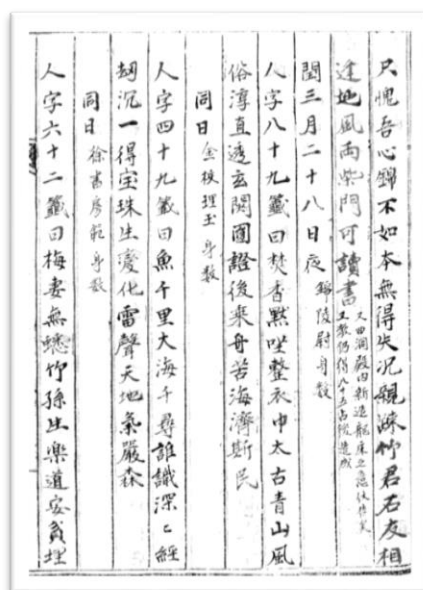 只愧吾心不如本無得失況親疎竹君石友相
地風雨柴門可讀書
又曲洞殿內新造龍床之意
又教仍八十五占後造成
閏三月二十八日夜 陵尉身數
人字八十九籤曰焚香默坐整衣巾太古青山風
俗淳直透玄關圓證後乘舟苦海濟斯民
同日 金理玉身數
人字四十九籤曰魚千里大海千尋誰識深〻經
刼沉一得宝珠生變化雷聲天地氣嚴森
同日 徐書房範身數
人字六十二籤曰梅妻無竹孫生樂道安貧埋